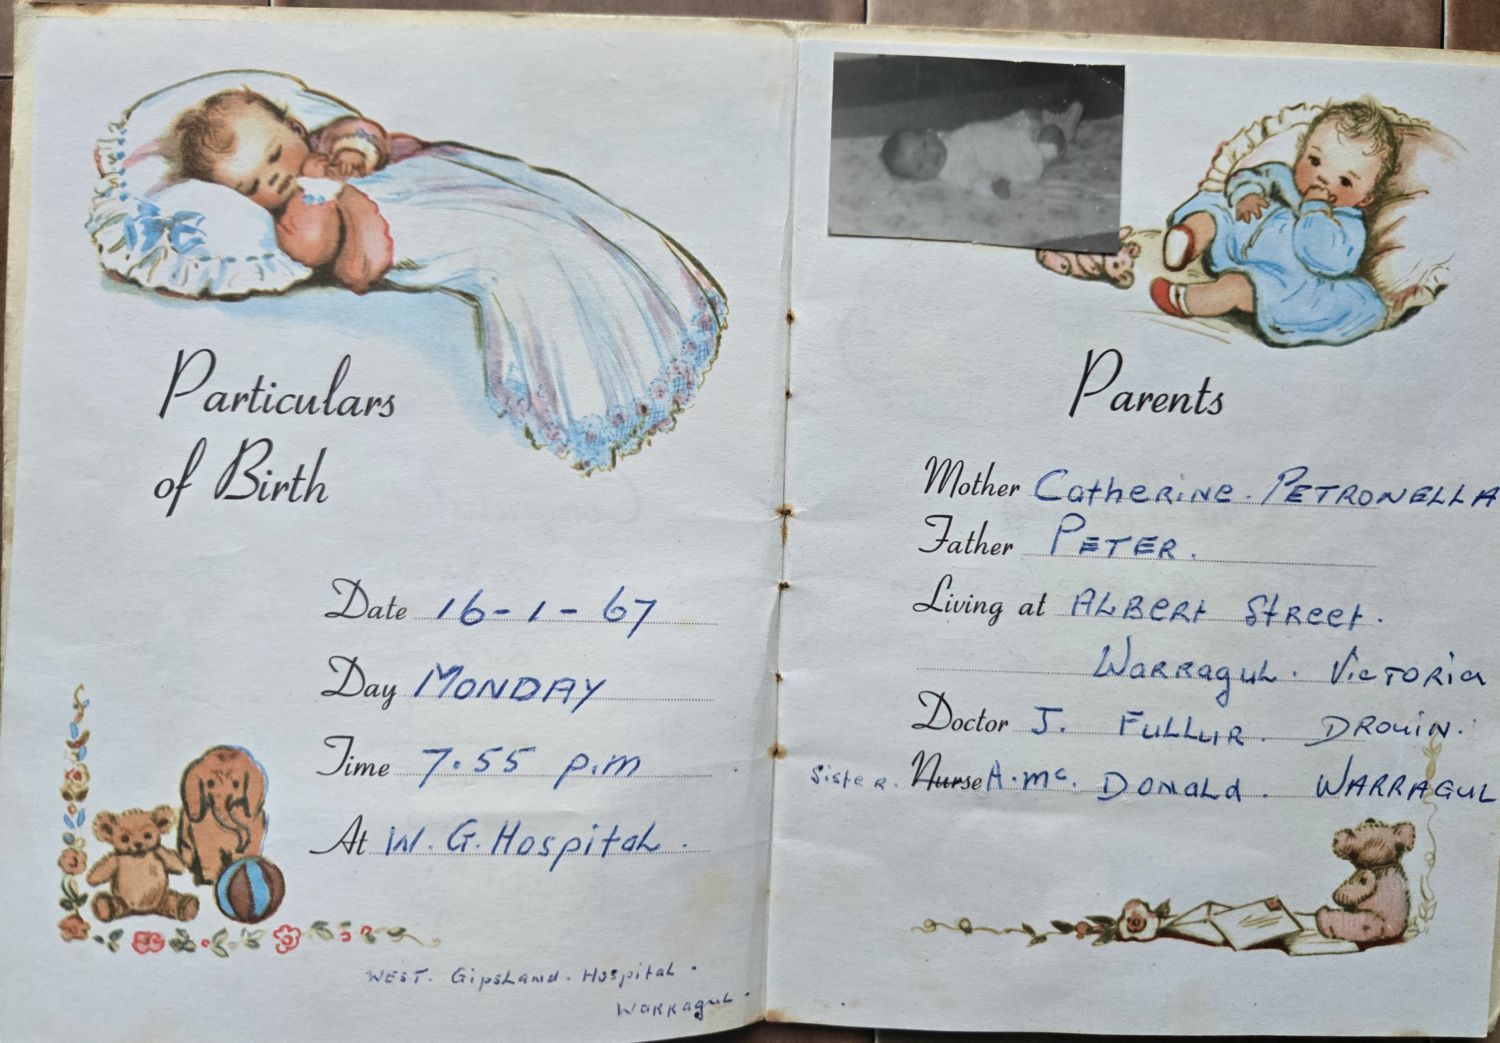 Particulars
of Birth
Date 16-1-67
Day MONDAY
Time 7.55 p.m
At W.G. Hospital.
WEST. GipsLand. Hospital.
Warragul.
Parents
Mother Catherine. PETRONELLA
Father PETER.
Living at ALBERt Street.
Warragul. Victoria
Doctor J. FULLUR. DROUIN.
Sister. Nurse A. Mc. DONALd. WARRAGUL